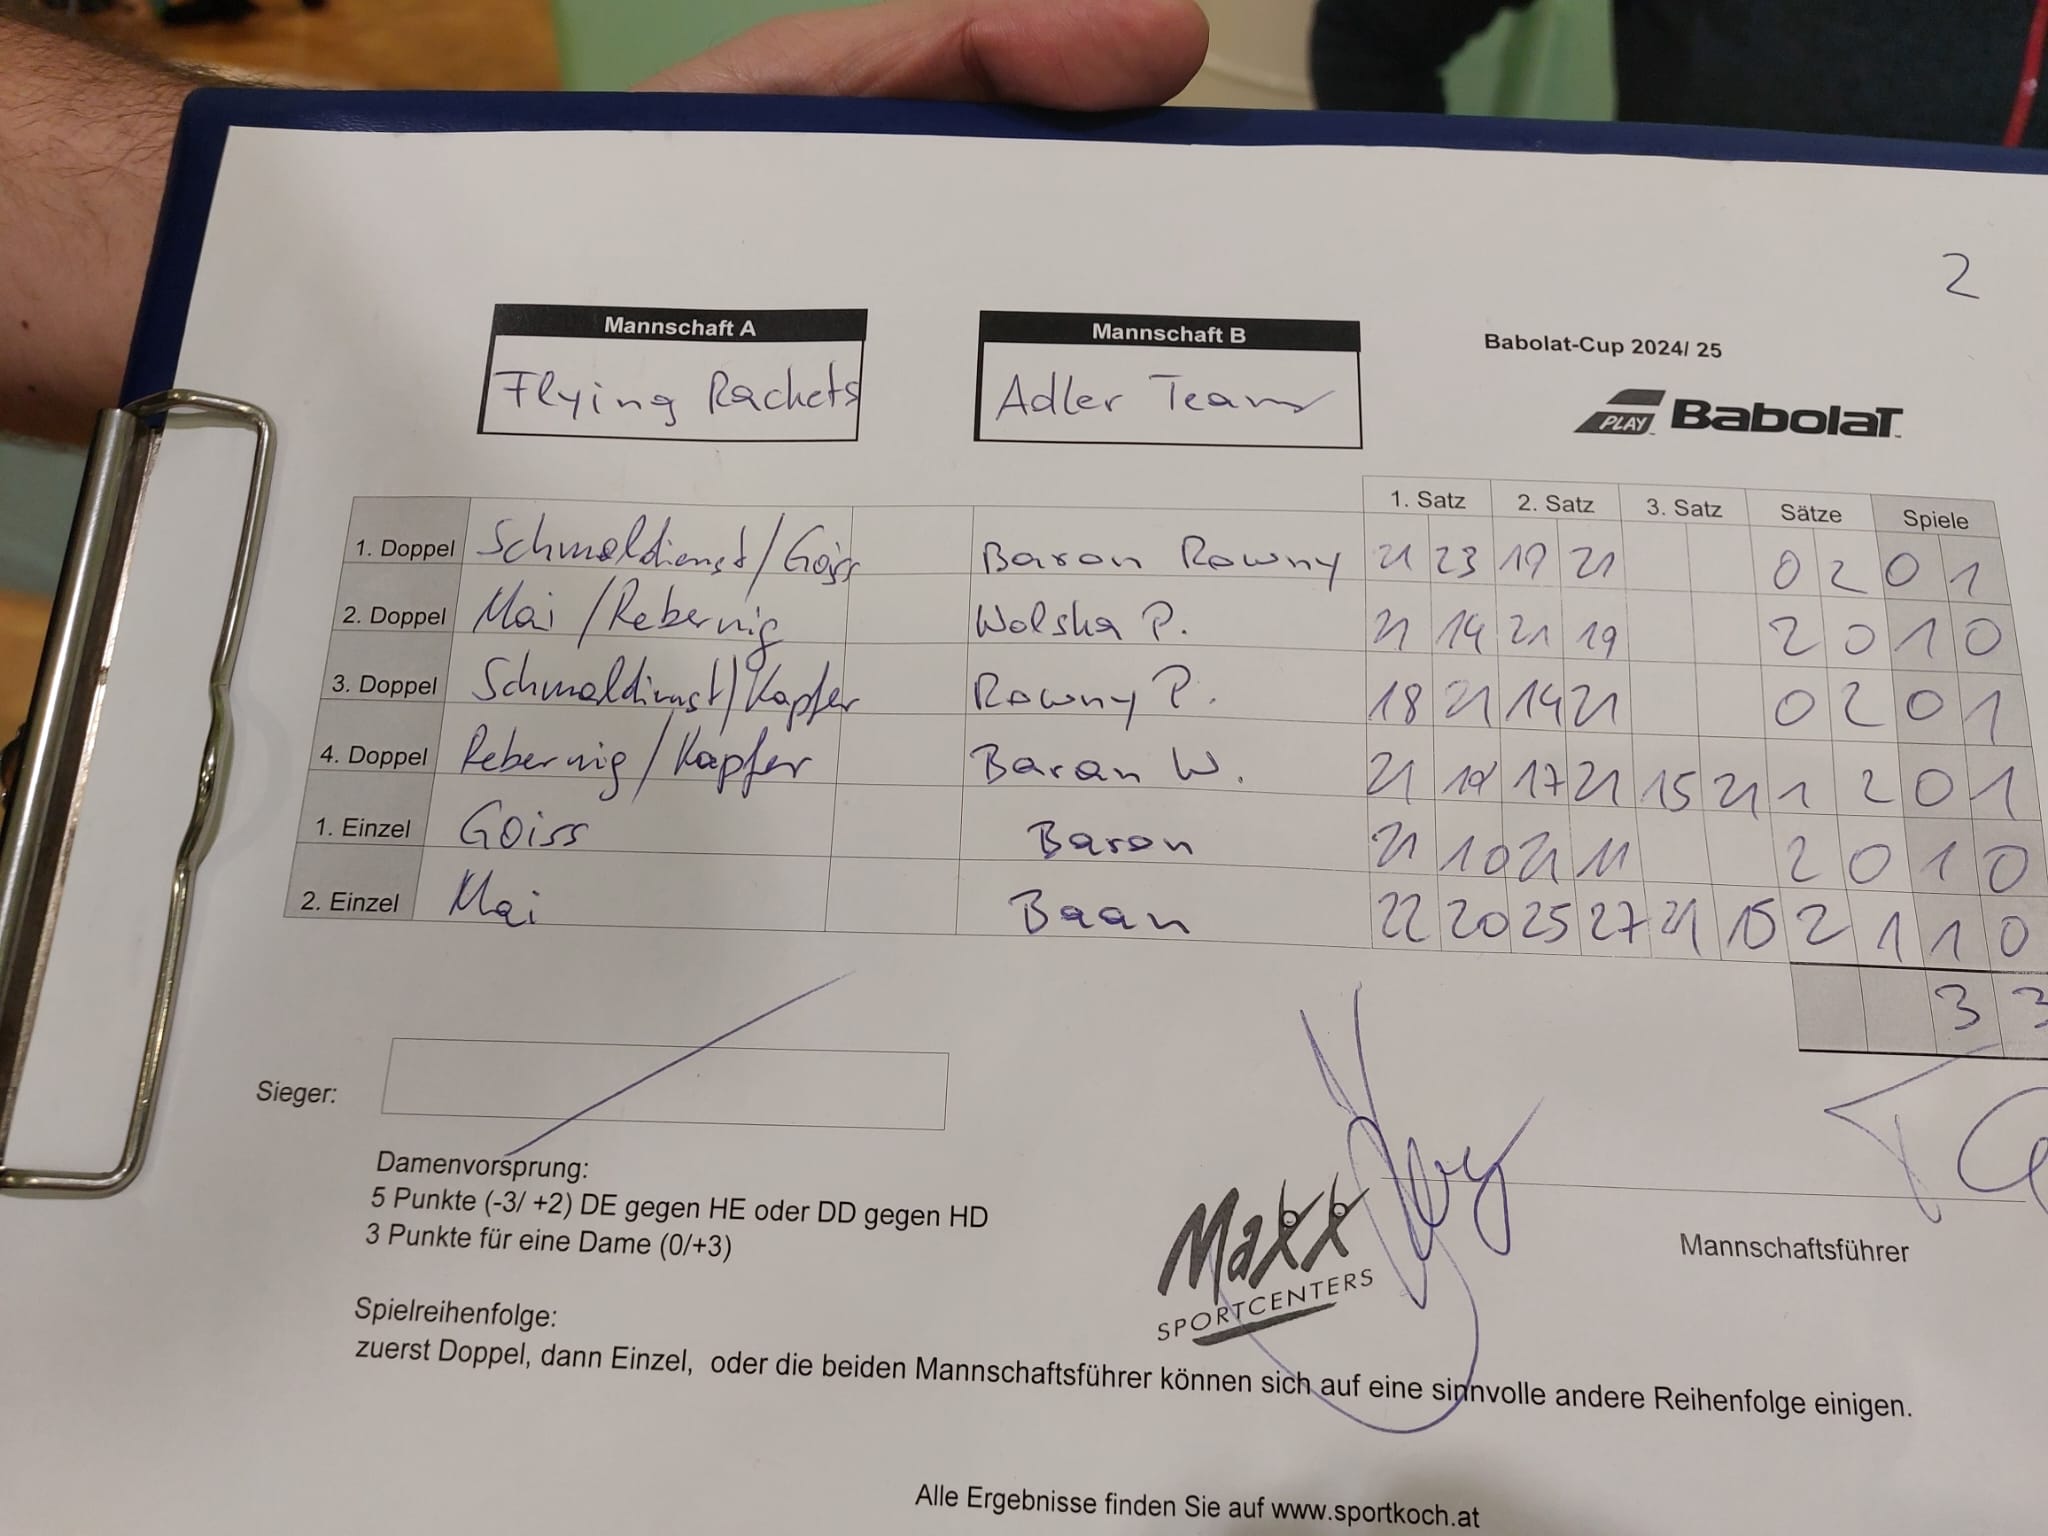 2
Mannschaft A
Mannschaft B
Flying Rackets
Adler Team
Babolat-Cup 2024/ 25
PLAY BabolaT
1. Satz 2. Satz 3. Satz Sätze Spiele
1. Doppel Schmoldienst/Goiss Baron Rowny 21 23 19 21 0 2 0 1
2. Doppel Mai /Rebernig Wolska P. 21 14 21 19 2 0 1 0
3. Doppel Schmoldinst/Kapfer Rowny P. 18 21 14 21 0 2 0 1
4. Doppel Rebernig/Kapfer Baran W. 21 19 17 21 15 21 1 2 0 1
1. Einzel Goiss Baron 21 10 21 11 2 0 1 0
2. Einzel Mai Baan 22 20 25 27 21 15 2 1 1 0
3 3
Sieger:
Damenvorsprung:
5 Punkte (-3/ +2) DE gegen HE oder DD gegen HD
3 Punkte für eine Dame (0/+3)
Maxx
SPORTCENTERS
Mannschaftsführer
Spielreihenfolge:
zuerst Doppel, dann Einzel, oder die beiden Mannschaftsführer können sich auf eine sinnvolle andere Reihenfolge einigen.
Alle Ergebnisse finden Sie auf www.sportkoch.at